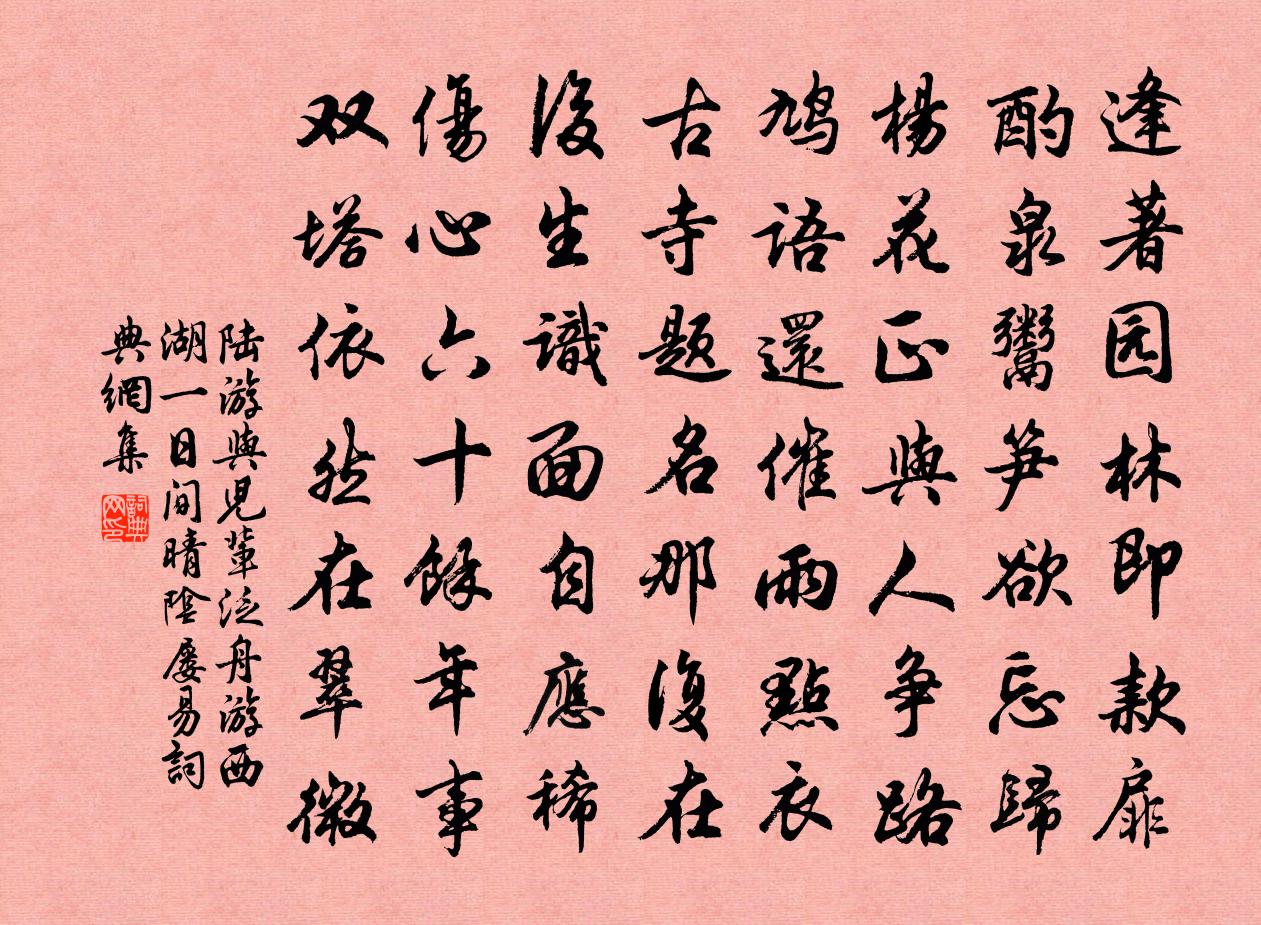 逢著园林即款扉
酌泉鬻笋欲忘歸
楊花正與人争路
鳩語還催雨點衣
古寺题名那復在
後生識面自應稀
傷心六十餘年事
双塔依然在翠微
陆游與児輩泛舟游西
湖一日间晴陰屡易詞
典網集
詞典网印